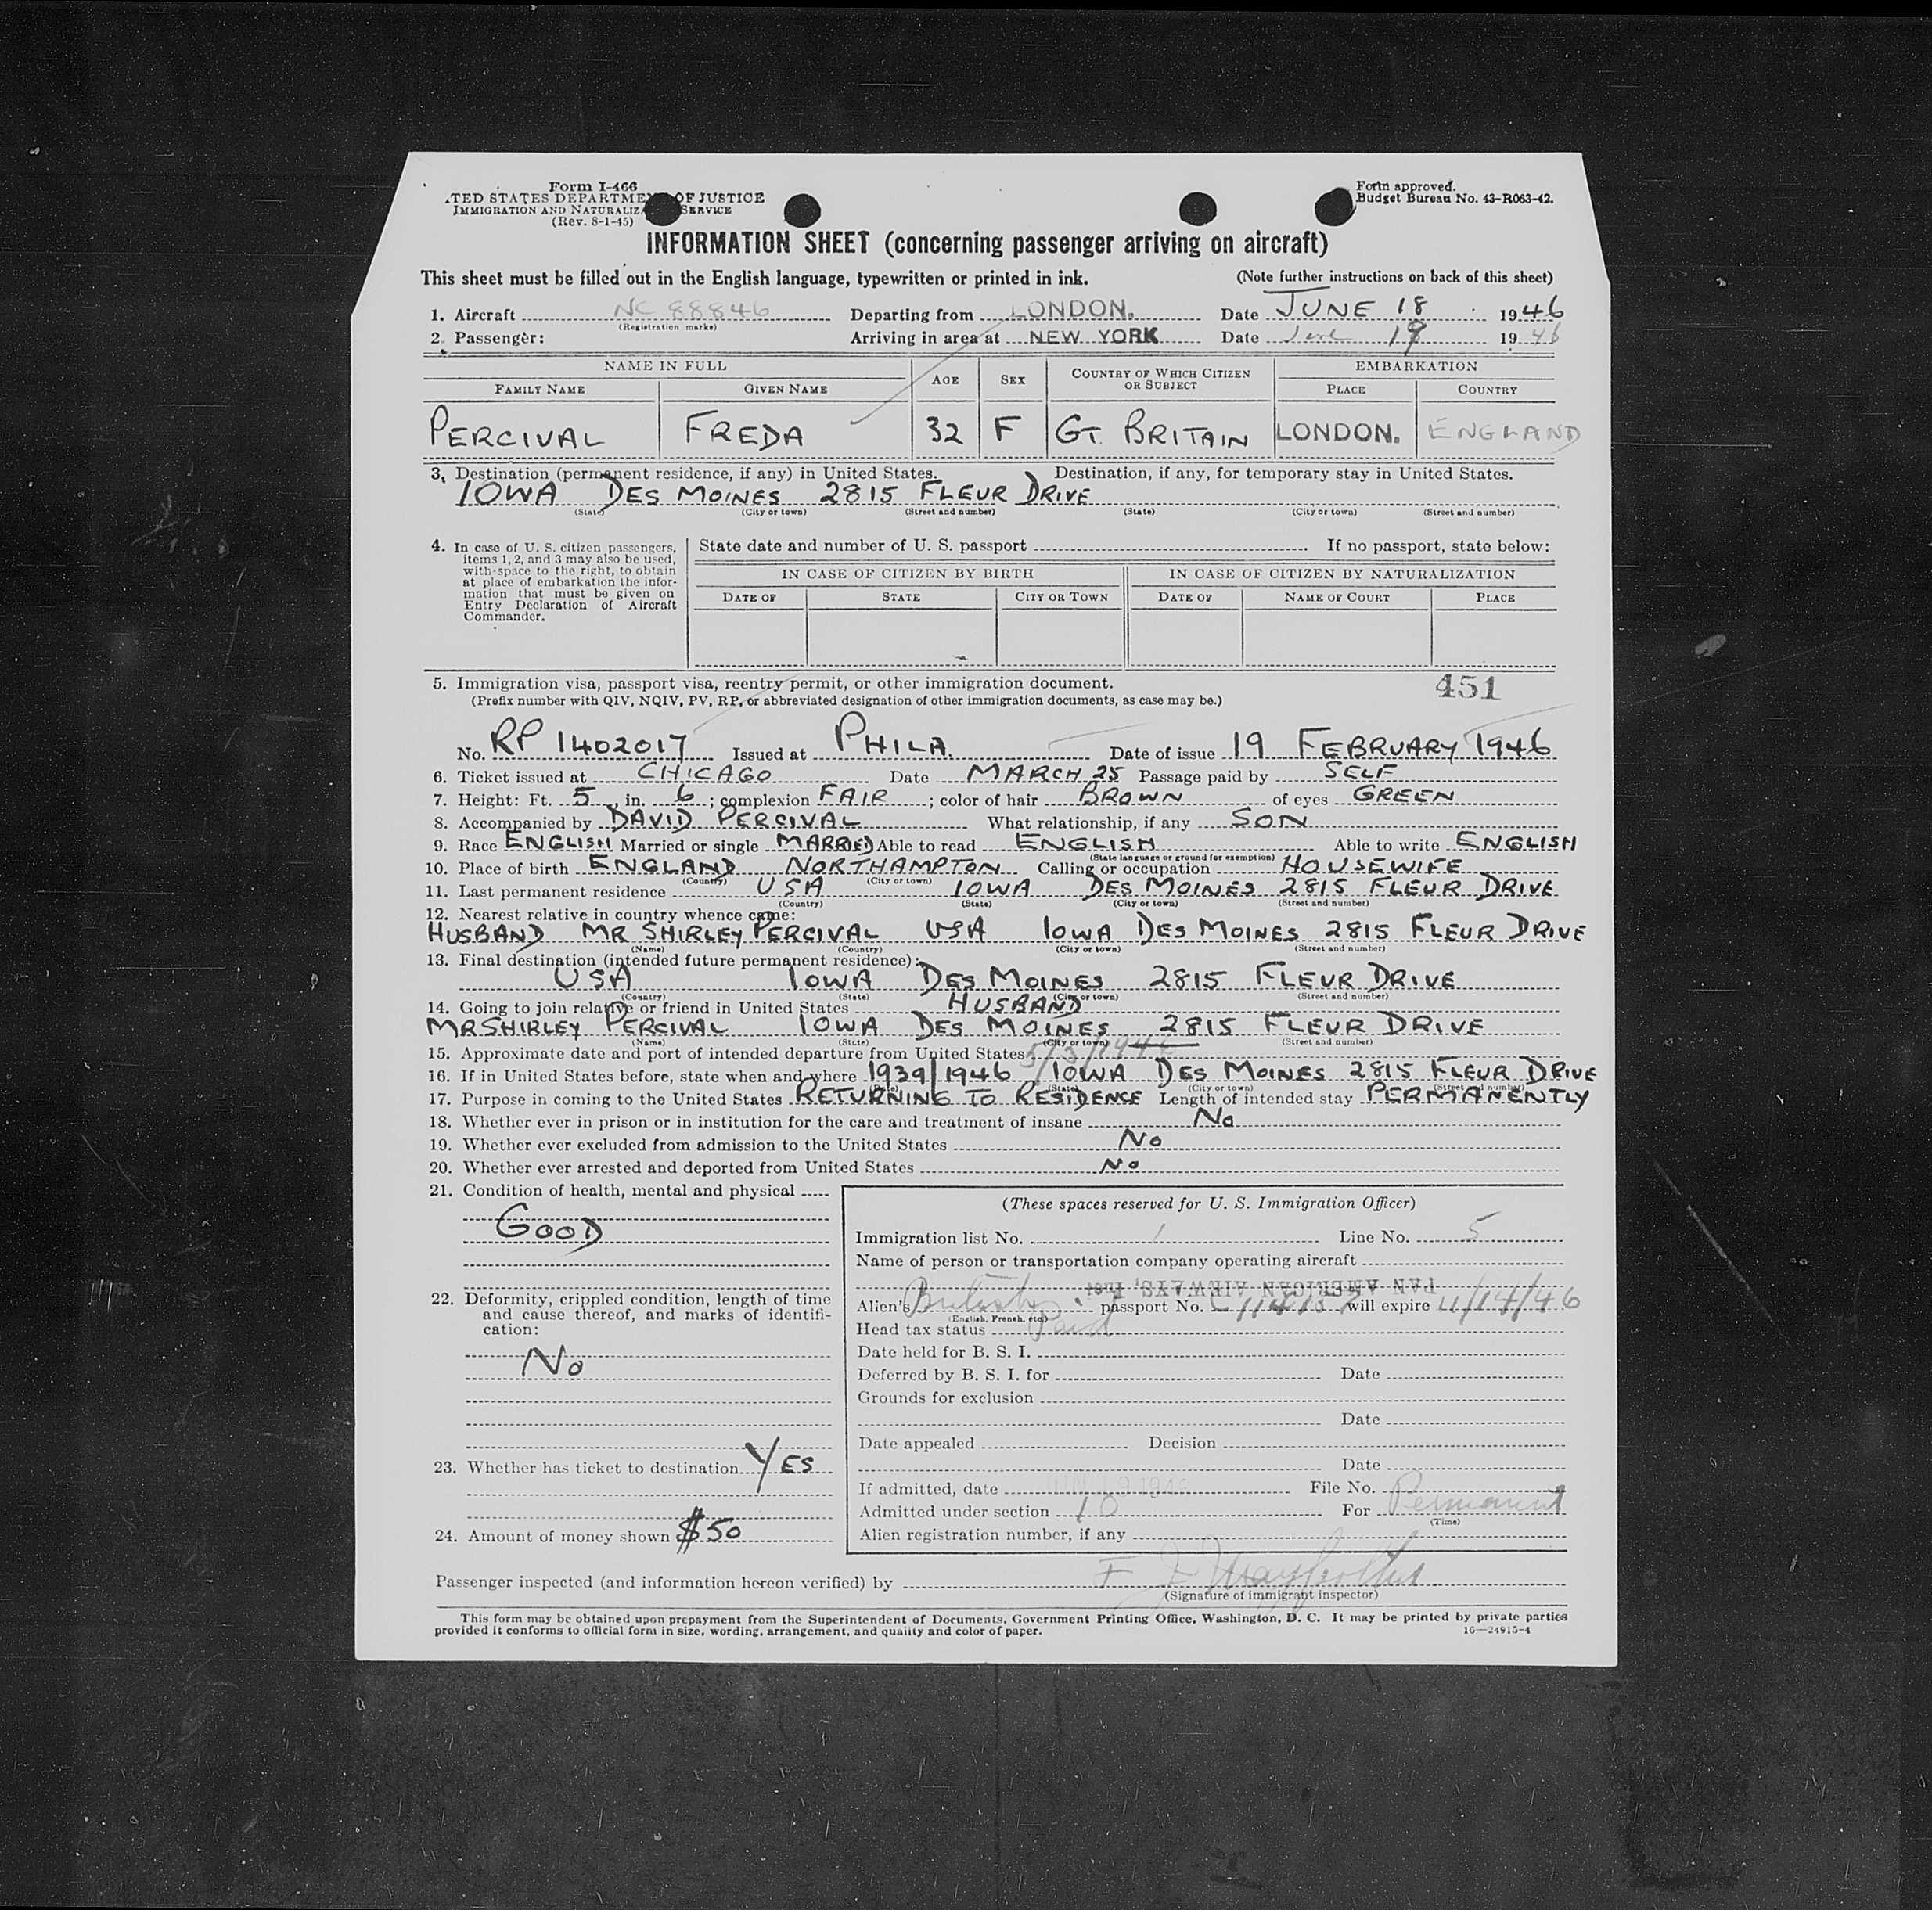 Form I-466
TED STATES DEPARTME OF JUSTICE
IMMIGRATION AND NATURALIZA SERVICE
(Rev. 8-1-45)
Form approved.
Budget Bureau No. 43-R063-42.
INFORMATION SHEET (concerning passenger arriving on aircraft)
This sheet must be filled out in the English language, typewritten or printed in ink. (Note further instructions on back of this sheet)
1. Aircraft NC 88846 Departing from LONDON. Date JUNE 18 1946
(Registration marks)
2. Passenger: Arriving in area at NEW YORK Date June 19 1946
NAME IN FULL AGE SEX COUNTRY OF WHICH CITIZEN OR SUBJECT EMBARKATION
FAMILY NAME GIVEN NAME PLACE COUNTRY
PERCIVAL FREDA 32 F GT. BRITAIN LONDON. ENGLAND
3. Destination (permanent residence, if any) in United States. Destination, if any, for temporary stay in United States.
IOWA DES MOINES 2815 FLEUR DRIVE
(State) (City or town) (Street and number) (State) (City or town) (Street and number)
4. In case of U. S. citizen passengers, items 1, 2, and 3 may also be used, with space to the right, to obtain at place of embarkation the information that must be given on Entry Declaration of Aircraft Commander.
State date and number of U. S. passport If no passport, state below:
IN CASE OF CITIZEN BY BIRTH IN CASE OF CITIZEN BY NATURALIZATION
DATE OF STATE CITY OR TOWN DATE OF NAME OF COURT PLACE
5. Immigration visa, passport visa, reentry permit, or other immigration document. 451
(Prefix number with QIV, NQIV, PV, RP, or abbreviated designation of other immigration documents, as case may be.)
No. RP 1402017 Issued at PHILA. Date of issue 19 FEBRUARY 1946
6. Ticket issued at CHICAGO Date MARCH 25 Passage paid by SELF
7. Height: Ft. 5, in. 6; complexion FAIR; color of hair BROWN of eyes GREEN
8. Accompanied by DAVID PERCIVAL What relationship, if any SON
9. Race ENGLISH Married or single MARRIED Able to read ENGLISH Able to write ENGLISH
(State language or ground for exemption)
10. Place of birth ENGLAND NORTHAMPTON Calling or occupation HOUSEWIFE
(Country) (City or town)
11. Last permanent residence USA IOWA DES MOINES 2815 FLEUR DRIVE
(Country) (State) (City or town) (Street and number)
12. Nearest relative in country whence came:
HUSBAND MR SHIRLEY PERCIVAL USA IOWA DES MOINES 2815 FLEUR DRIVE
(Name) (Country) (City or town) (Street and number)
13. Final destination (intended future permanent residence):
USA IOWA DES MOINES 2815 FLEUR DRIVE
(Country) (State) (City or town) (Street and number)
14. Going to join relative or friend in United States HUSBAND
MR SHIRLEY PERCIVAL IOWA DES MOINES 2815 FLEUR DRIVE
(Name) (State) (City or town) (Street and number)
15. Approximate date and port of intended departure from United States
16. If in United States before, state when and where 1939/1946 IOWA DES MOINES 2815 FLEUR DRIVE
(Date) (State) (City or town) (Street and number)
17. Purpose in coming to the United States RETURNING TO RESIDENCE Length of intended stay PERMANENTLY
18. Whether ever in prison or in institution for the care and treatment of insane No
19. Whether ever excluded from admission to the United States No
20. Whether ever arrested and deported from United States No
21. Condition of health, mental and physical
GOOD
22. Deformity, crippled condition, length of time and cause thereof, and marks of identification:
No
23. Whether has ticket to destination YES
24. Amount of money shown $50
(These spaces reserved for U. S. Immigration Officer)
Immigration list No. 1 Line No. 5
Name of person or transportation company operating aircraft
PAN AMERICAN AIRWAYS, Inc.
Alien's British passport No. will expire 11/14/46
(English, French, etc.)
Head tax status Paid
Date held for B. S. I.
Deferred by B. S. I. for Date
Grounds for exclusion
Date
Date appealed Decision
Date
If admitted, date JUN 19 1946 File No.
Admitted under section 10 For Permanent
(Time)
Alien registration number, if any
Passenger inspected (and information hereon verified) by
(Signature of immigrant inspector)
This form may be obtained upon prepayment from the Superintendent of Documents, Government Printing Office, Washington, D. C. It may be printed by private parties
provided it conforms to official form in size, wording, arrangement, and quality and color of paper. 16—24915-4